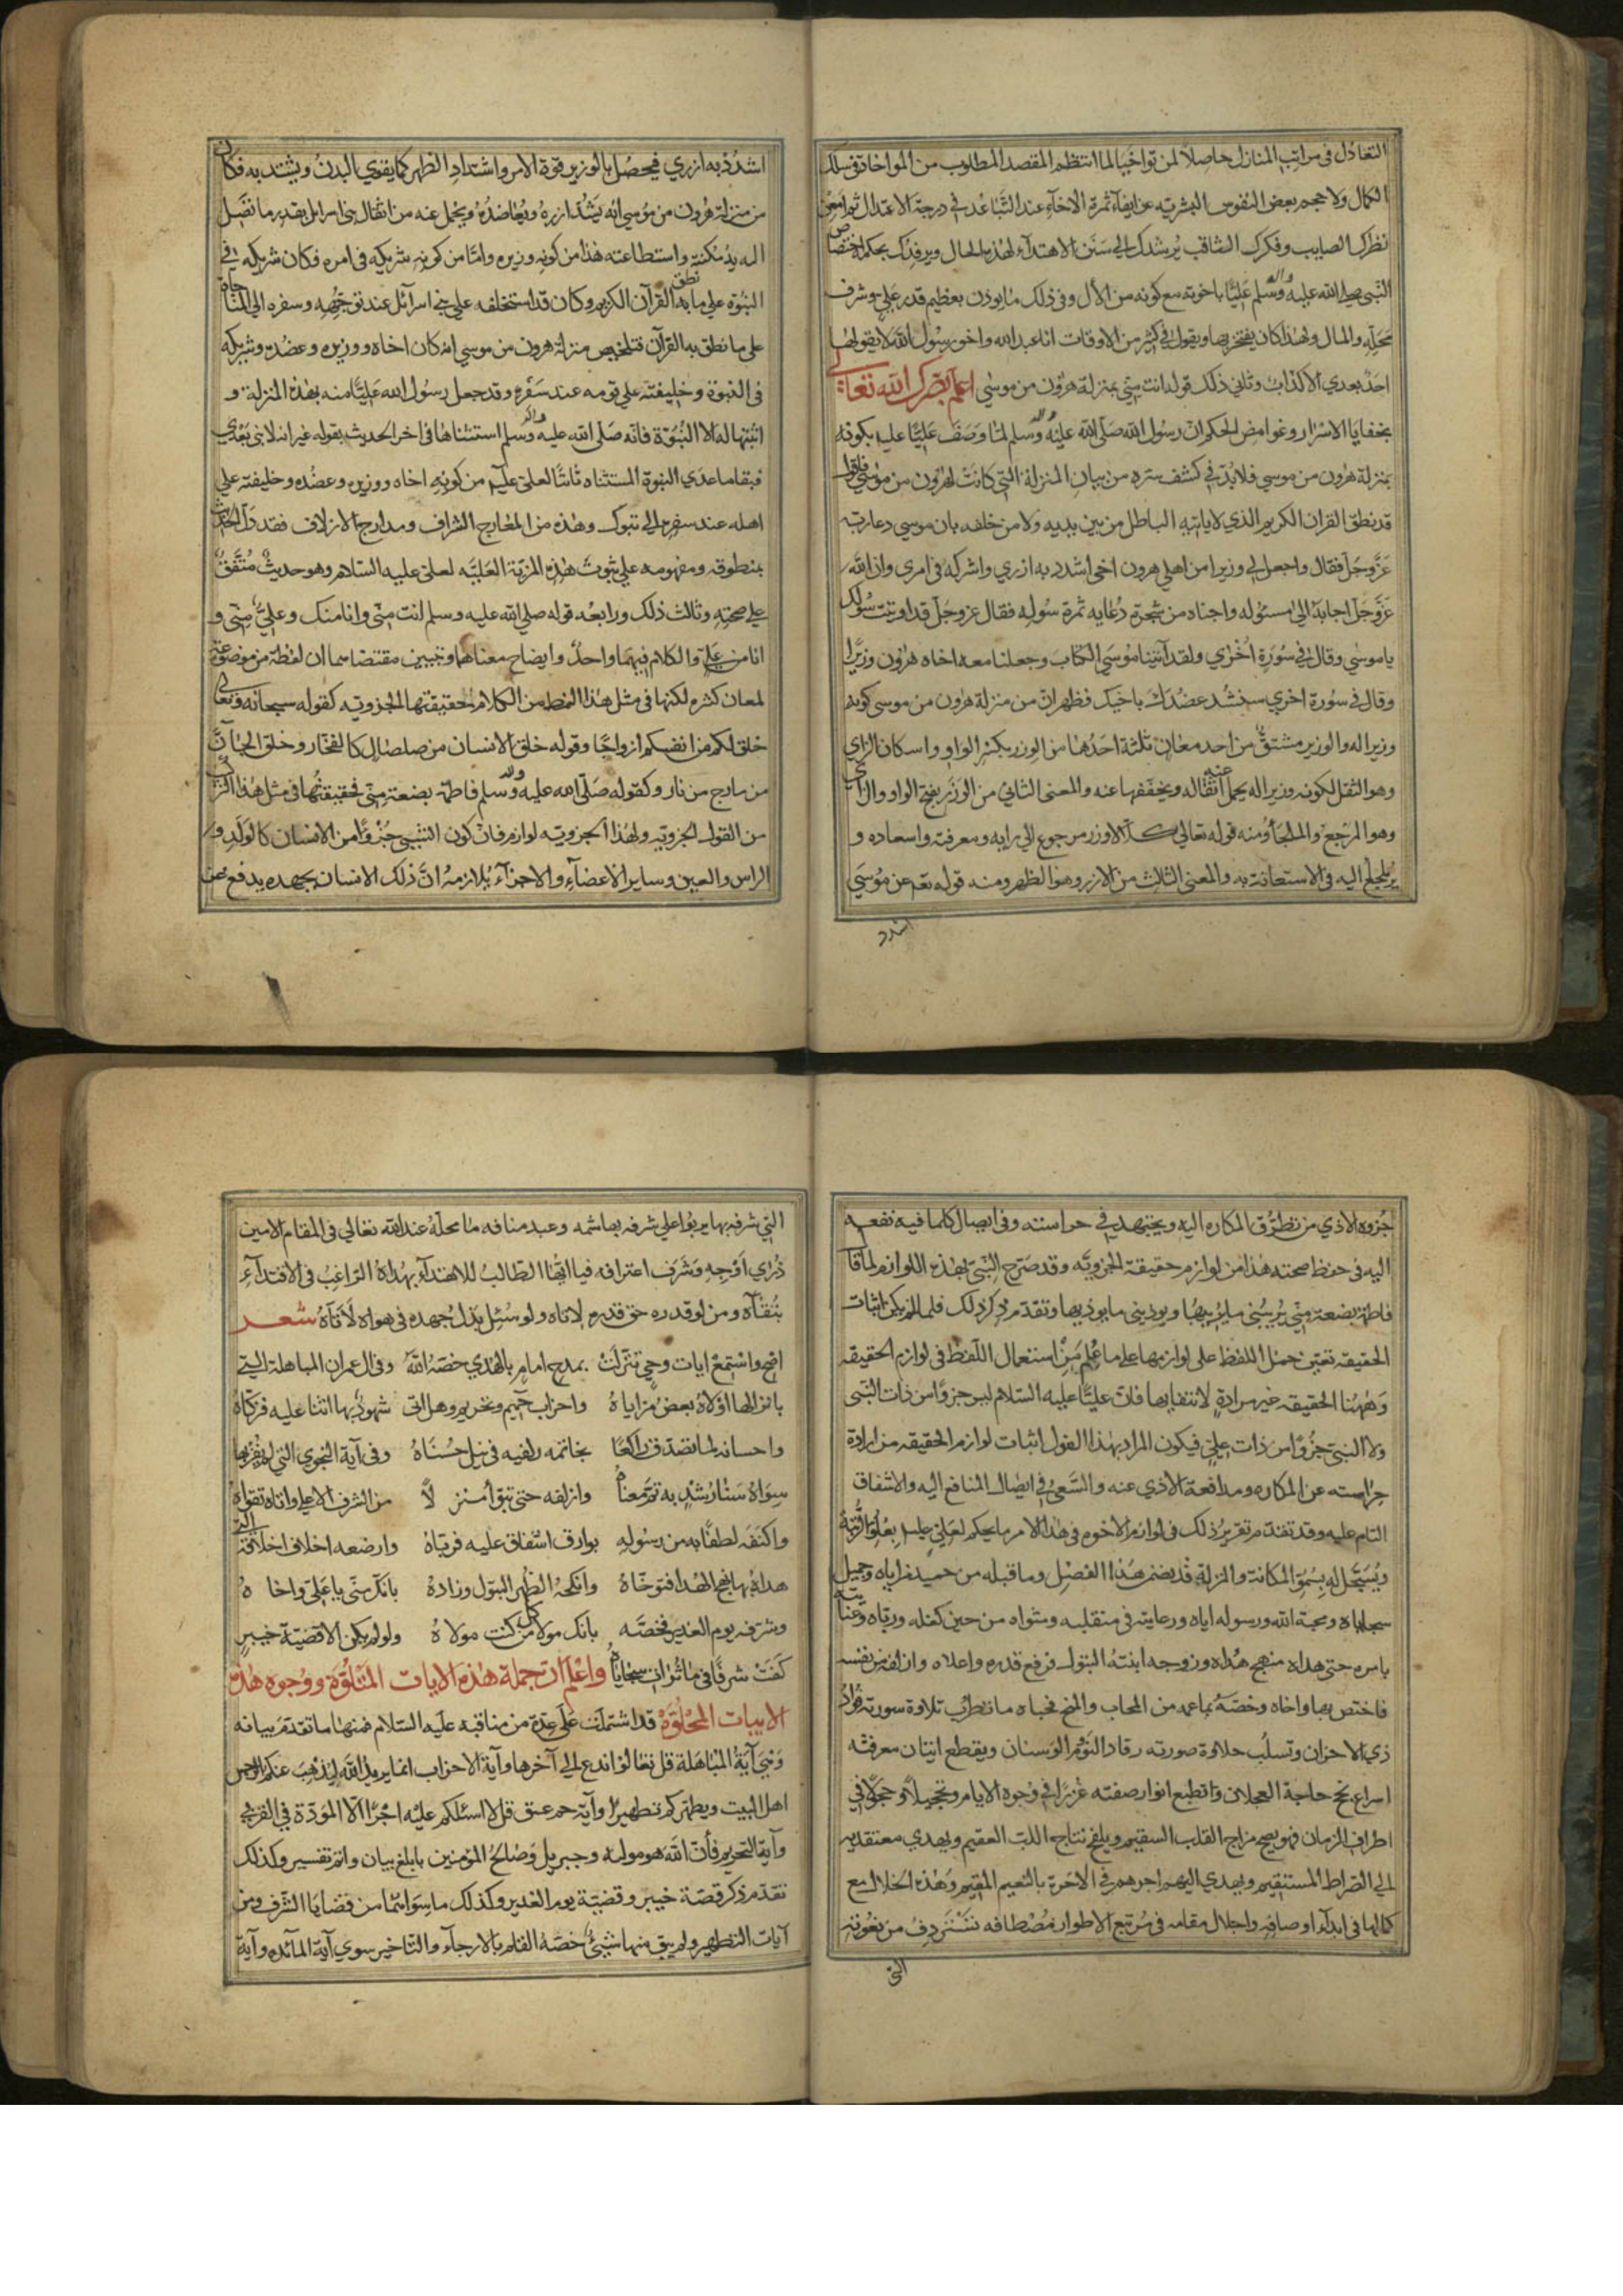 التعادل في مراتب المنازل حاصلا لمن تواخيا لما انتظم المقصد المطلوب من المواخاة في سلك
الكمال ولا حجم بعض النفوس البشرية عن ايفآء ثمرة الاخآء عند التباعد في درجة الاعتدال ثم امعن
نظرك الصايب وفكرك الثاقب يرشدك الي سنن الاهتدآء لهذه الحال ويرفدك بحكمة اختصاص
النبي صلى الله عليه واله وسلم عليا باخوته مع كونه من الآل وفي ذلك ما يوذن بعظيم قدر علي وشرف
محله والمال ولهذا كان يفتخر بها ويقول في كثير من الاوقات انا عبد الله واخو رسول الله لا يقولها
احد بعدي الا كذاب وثاني ذلك قوله انت مني بمنزلة هرون من موسي اعلم بصرك الله تعالي
بخفايا الاسرار وغوامض الحكم ان رسول الله صلى الله عليه واله وسلم لما وصف عليا عليه بكونه
بمنزلة هرون من موسي فلا بد في كشف ستره من بيان المنزلة التي كانت لهرون من موسي فاقول
قد نطق القران الكريم الذي لا ياتيه الباطل من بين يديه ولا من خلفه بان موسي دعا ربه
عز وجل فقال واجعل لي وزيرا من اهلي هرون اخي اشدد به ازري واشركه في امري وان الله
عز وجل اجابه الى مسئوله واجناه من شجرة دعايه ثمرة سوله فقال عز وجل قد اوتيت سولك
ياموسي وقال في سورة اخري ولقد آتينا موسي الكتاب وجعلنا معه اخاه هرون وزيرا
وقال في سورة اخري سنشد عضدك باخيك فظهر ان من منزلة هرون من موسي كونه
وزيرا له والوزير مشتق من احد معان ثلثة احدها من الوزر بكسر الواو واسكان الزاي
وهو الثقل لكونه وزيرا له يحمل عنه اثقاله ويخففها عنه والمعني الثاني من الوزر بفتح الواو والزاي
وهو المرجع والملجأ ومنه قوله تعالي كلا لا وزر مرجوع الي رايه ومعرفته واسعاده و
يلجأ اليه في الاستعانة به والمعني الثالث من الازر وهو الظهر ومنه قوله تعم عن موسي
اشدد
اشدد به ازري فيحصل بالوزير قوة الامر واشتداد الظهر كما يقوي البدن ويشتد به فكان
من منزلة هرون من موسي انه يشد ازره ويعاضده ويحمل عنه من اثقال بني اسرايل بقدر ما تصل
اليه يد مكنته واستطاعته هذا من كونه وزيره واما من كونه شريكه في امره فكان شريكه في
النبوة علي ما نطق به القرآن الكريم وكان قد استخلفه علي بني اسرآئل عند توجهه وسفره الي المناجاة
على ما نطق به القرآن فتلخيص منزلة هرون من موسي انه كان اخاه ووزيره وعضده وشريكه
في النبوة وخليفته علي قومه عند سفره وقد جعل رسول الله عليا منه بهذه المنزلة و
اثبتها له الا النبوة فانه صلى الله عليه واله وسلم استثناها في اخر الحديث بقوله غير انه لا نبي بعدي
فبقا ما عدي النبوة المستثناه ثابتا لعلي عليم من كونه اخاه ووزيره وعضده وخليفته علي
اهله عند سفره الي تبوك وهذه من المعارج الشراف ومدارج الازلاف فقد دل الحديث
بمنطوقه ومفهومه علي ثبوت هذه المزية العلية لعلي عليه السلام وهو حديث متفق
علي صحته وثالث ذلك ورابعه قوله صلي الله عليه وسلم انت مني وانا منك وعلي مني و
انا من علي والكلام فيهما واحد وايضاح معناهما وتبيين مقتضاهما ان لفظة من موضوعة
لمعان كثيره لكنها في مثل هذا النمط من الكلام حقيقتها الجزويه كقوله سبحانه وتعالي
خلق لكم من انفسكم ازواجا وقوله خلق الانسان من صلصال كالفخار وخلق الجآن
من مارج من نار وكقوله صلى الله عليه واله وسلم فاطمة بضعة مني فحقيقتها في مثل هذا التركيب
من القول الجزويه ولهذا الجزويه لوازم فان كون الشيء جزوا من الانسان كالولد و
الراس والعين وساير الاعضآء والاجزآء يلازمه ان ذلك الانسان يجهده يدفع عن
جزوه الاذي من تطرق المكاره اليه ويجتهد في حراسته وفي ايصال كلما فيه نفعه
اليه في حفظ صحته هذا من لوازم حقيقة الجزويه وقد صرح النبي بهذه اللوازم لما قال
فاطمة بضعة مني يريبني ما يريبها ويوذيني ما يوذيها وتقدم ذكر ذلك فلما لم يكن اثبات
الحقيقه تعين حمل اللفظ على لوازمها علي ما علم من استعمال اللفظ في لوازم الحقيقه
وههنا الحقيقه غير مرادة لانتفايها فان عليا عليه السلام ليس جزوا من ذات النبي
ولا النبي جزوا من ذات علي فيكون المراد بهذا القول اثبات لوازم الحقيقه من ارادة
حراسته عن المكاره ومدافعة الاذي عنه والسعي في ايصال المنافع اليه والاشفاق
التام عليه وقد تقدم تقرير ذلك في لوازم الاخوه في هذا الامر ما يحكم لعلي عليه بعلو الرتبة
ويسجل له بسمو المكانة والمزلة قد يضمن هذا الفصل وما قبله من حميد مزاياه وجميل
سجاياه ومحبة الله ورسوله اياه ورعايته في منقلبه ومثواه من حين كفله ورباه وعنايته
بامره حتي هداه منهج هداه وزوجه ابنته البتول فرفع قدره واعلاه وازلفه من نفسه
فاختص بها واخاه وخصه بما عمه من المحاب والمنح فحباه ما تطرب تلاوة سورته فواد
ذي الاحزان وتسلب حلاوة صورته رقاد النوم الوسنان ويقطع اتيان معرفته
اسراع نجح حاجة العجلان وانطبع انوار صفته غررا في وجوه الايام وتحجيلا وحجولا في
اطراف الزمان فهو يصح مزاج القلب السقيم ويلقح نتاج اللب العقيم ويهدي معتقديه
الي الصراط المستقيم ويهدي اليهم اجرهم في الاخرة بالنعيم المقيم وهذه الخلال مع
كمالها في ابدآء اوصافه واجلال مقامه في مرتبع الاطوار مصطافه تستردف من نعوته
التي
التي شرفه بها يربوا علي شرفه بهاشمه وعبد منافه ما محله عند الله تعالي في المقام الامين
ذري اوجه وشرف اعترافه فيا ايها الطالب للاهتدآء بهداه الراغب في الاقتدآء
بتقآه ومن لو قدره حق قدره لاتاه ولو سئل بذل جهده في هواه لاتآه شعر
اصح واستمع ايات وحي تنزلت بمدح امام بالهدي خصه الله وفي ال عمران المباهلة التي
بانزالها اولاه بعض مزاياه واحزاب حميم وتحريم وهل اتي شهود بها اثنا عليه فزكاه
واحسانه لما تصدق راكعا بخاتمه يلفيه في نيل حسناه وفي آية النجوي التي لم يفز بها
سواه سنا رشد به تم معناه وازلفه حتي تبوأ منزلا من الشرف الاعلي واتاه تقواه
واكنفه لطفا به من رسوله بوارق اشفاق عليه فرباه وارضعه اخلاف اخلاقه التي
هداه بها نهج الهدا فتوخاه وانكحه الطهر البتول وزاده بانك مني يا علي واخاه
وشرفه يوم الغدير فخصه بانك مولا كل من كنت مولاه ولو لم يكن الا قضية خيبر
كفت شرفا في ماثرات سجاياه واعلم ان جملة هذه الايات المتلوة ووجوه هذه
الابيات المجلوة قد اشتملت علي عدة من مناقبه عليه السلام فمنها ما تقدم بيانه
وهي آية المباهلة قل تعالوا ندع الي آخرها وآية الاحزاب انما يريد الله ليذهب عنكم الرجس
اهل البيت ويطهركم تطهيرا وآية حم عسق قل لا اسئلكم عليه اجرا الا المودة في القربي
وآية التحريم فان الله هو موليه وجبريل وصالح المؤمنين بابلغ بيان واتم تفسير وكذلك
تقدم ذكر قصة خيبر وقضية يوم الغدير وكذلك ما سواهما من قضايا الشرف ومن
آيات التطهير ولم يبق منها شيئ خصه القلم بالارجآء والتاخير سوي آية المآئده وآية